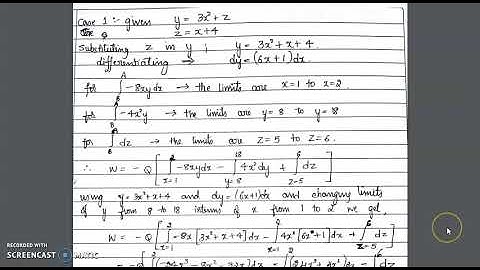 Case 1 :- given y = 3x² + z
z = x+4
Substituting z in y ; y = 3x² + x + 4.
differentiating ; dy = (6x+1)dx
for ∫ -8xy dx → the limits are x=1 to x=2.
for ∫ -4x²y → the limits are y=8 to y=18
for ∫ dz → the limits are z=5 to z=6.
∴ W = -Q [ ∫ -8xy dx - ∫ 4x² dy + ∫ dz ]
using y = 3x²+x+4 and dy = (6x+1)dx and changing limits
of y from 8 to 18 interms of x from 1 to 2 we get,
W = -Q [ ∫ -8x [3x²+x+4] dx - ∫ 4x² [6x+1] dx + ∫ dz ]
RECORDED WITH
SCREENCAST MATIC